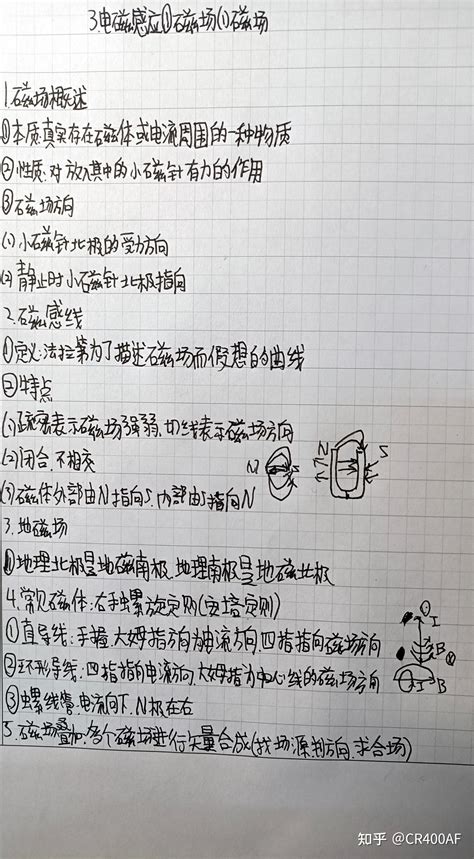 3.电磁感应①磁场(1)磁场
1.磁场概述
①本质:真实存在磁体或电流周围的一种物质
②性质:对放入其中的小磁针有力的作用
③磁场方向
(1)小磁针北极的受力方向
(2)静止时小磁针北极指向
2.磁感线
①定义:法拉第为了描述磁场而假想的曲线
②特点
(1)疏密表示磁场强弱,切线表示磁场方向
(2)闭合,不相交
N S N S
(3)磁体外部由N指向S,内部由S指向N
3.地磁场
①地理北极是地磁南极,地理南极是地磁北极
4.常见磁体:右手螺旋定则(安培定则)
I
①直导线:手握,大姆指方向为电流方向,四指指向磁场方向
B
②环形导线:四指指向电流方向,大姆指为中心线的磁场方向
I B
③螺线管,电流向下,N极在右
5.磁场叠加:各个磁场进行矢量合成(找场源判方向,求合场)
知乎 @CR400AF